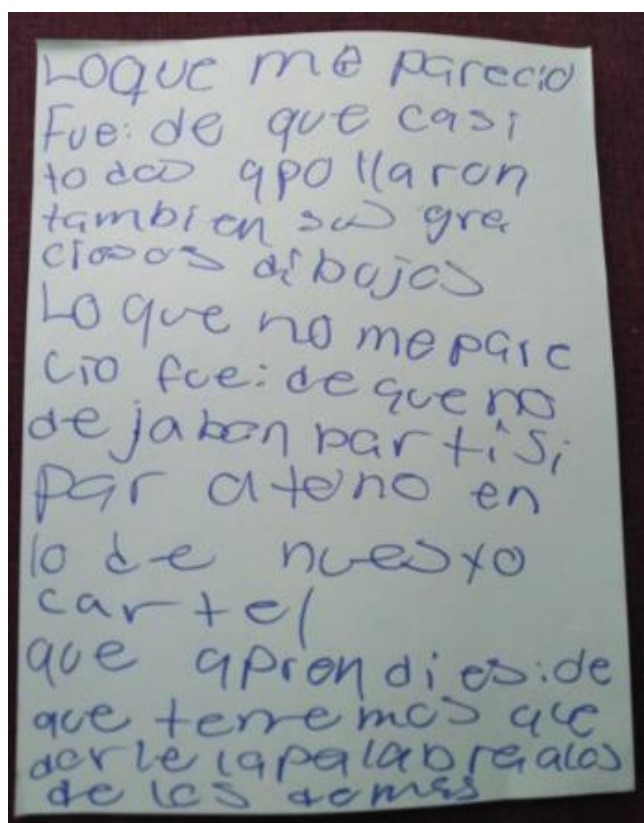 Lo que me parecio
Fue: de que casi
todos apollaron
tambien sus gra
ciosos dibujos
Lo que no me pare
cio fue: de que no
dejaban partisi
par a teno en
lo de nuestro
cartel
que aprendi es: de
que tenemos que
darle la palabra a los
de los demas